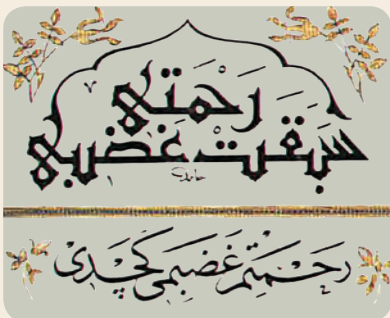 رَحْمَتي
سَبَقَت غَضَبي
حامد
رحمتم غضبمى كچدى